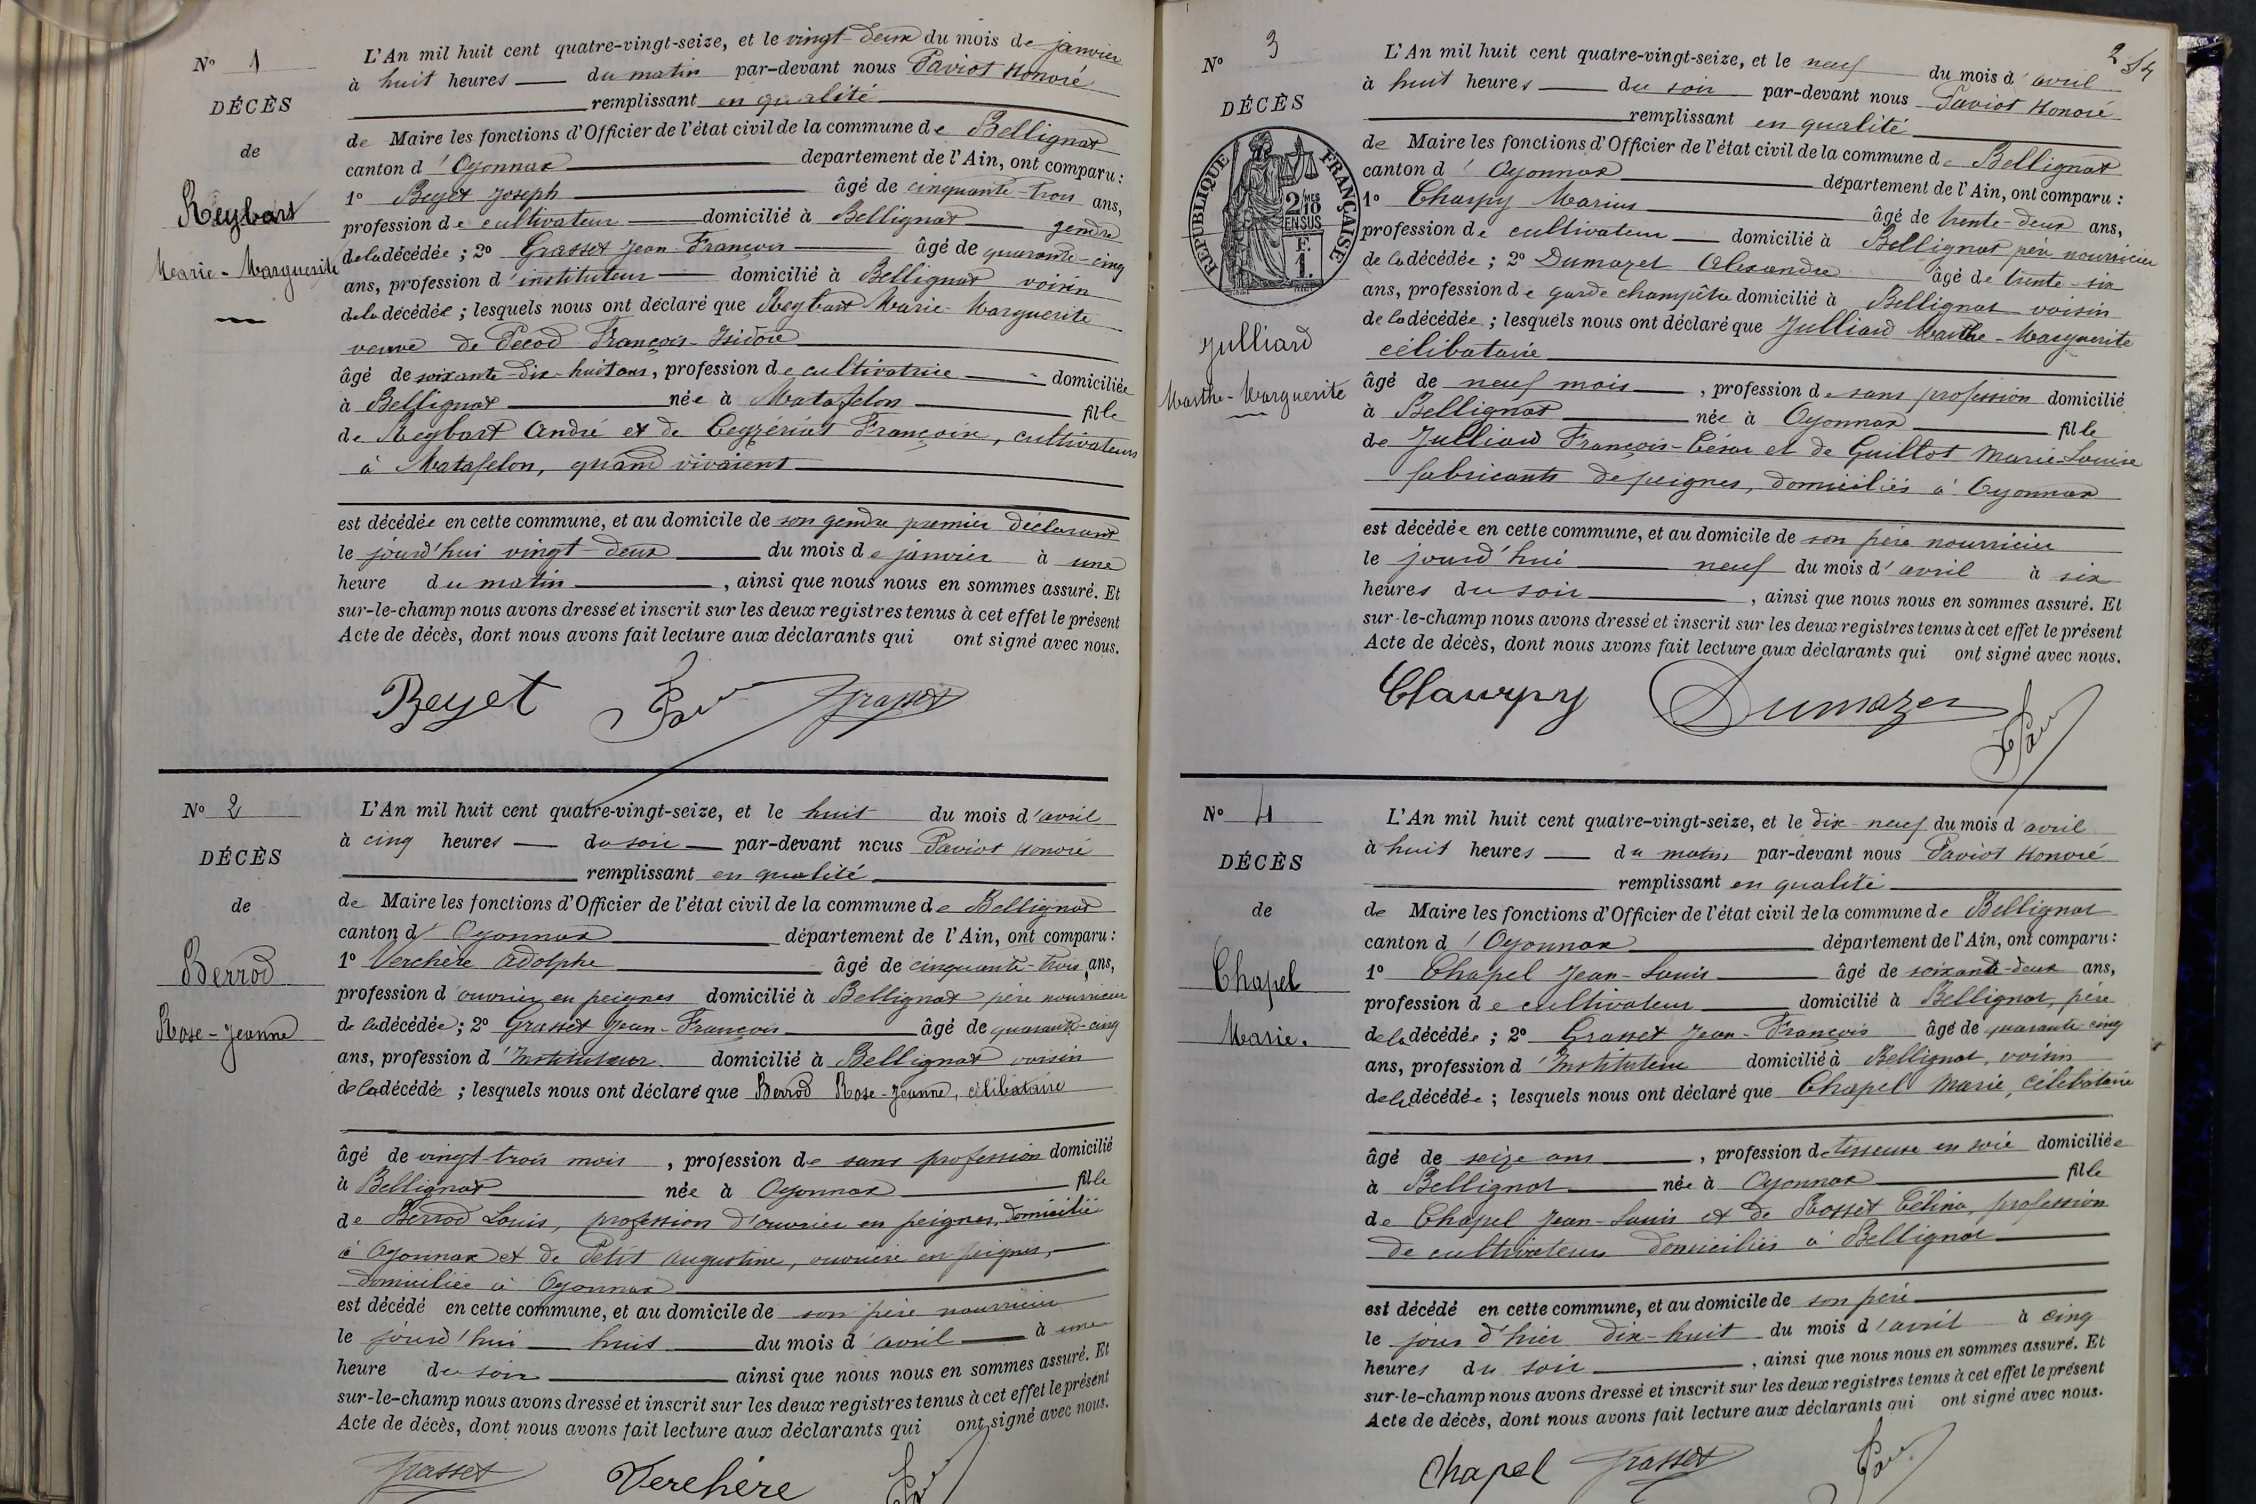 N° 1
DÉCÈS
de
Reybart
Marie-Marguerite
L'An mil huit cent quatre-vingt-seize, et le vingt-deux du mois de janvier
à huit heures du matin par-devant nous Paviot Honoré
remplissant en qualité
de Maire les fonctions d'Officier de l'état civil de la commune de Bellignat
canton d'Oyonnax departement de l'Ain, ont comparu:
1° Beyet Joseph âgé de cinquante-trois ans,
profession de cultivateur domicilié à Bellignat gendre
de la décédée; 2° Grasset Jean François âgé de quarante-cinq
ans, profession d'instituteur domicilié à Bellignat voisin
de la décédée; lesquels nous ont déclaré que Reybart Marie-Marguerite
veuve de Pécod François-Isidore
âgé de soixante-dix-huit ans, profession de cultivatrice domiciliée
à Bellignat née à Matafelon fille
de Reybart André et de Ceyzériat Françoise, cultivateurs
à Matafelon, quand vivaient
est décédée en cette commune, et au domicile de son gendre premier déclarant
le jourd'hui vingt-deux du mois de janvier à une
heure du matin, ainsi que nous nous en sommes assuré. Et
sur-le-champ nous avons dressé et inscrit sur les deux registres tenus à cet effet le présent
Acte de décès, dont nous avons fait lecture aux déclarants qui ont signé avec nous.
Beyet Grasset
N° 2
DÉCÈS
de
Berrod
Rose-Jeanne
L'An mil huit cent quatre-vingt-seize, et le huit du mois d'avril
à cinq heures du soir par-devant nous Paviot Honoré
remplissant en qualité
de Maire les fonctions d'Officier de l'état civil de la commune de Bellignat
canton d'Oyonnax département de l'Ain, ont comparu:
1° Verchère Adolphe âgé de cinquante-trois ans,
profession d'ouvrier en peignes domicilié à Bellignat père nourricier
de la décédée; 2° Grasset Jean-François âgé de quarante-cinq
ans, profession d'Instituteur domicilié à Bellignat voisin
de la décédée; lesquels nous ont déclaré que Berrod Rose-Jeanne, célibataire
âgé de vingt-trois mois, profession de sans profession domicilié
à Bellignat née à Oyonnax fille
de Berrod Louis, profession d'ouvrier en peignes, domicilié
à Oyonnax et de Petit Augustine, ouvrière en peignes,
domiciliée à Oyonnax
est décédé en cette commune, et au domicile de son père nourricier
le jourd'hui huit du mois d'avril à une
heure du soir ainsi que nous nous en sommes assuré. Et
sur-le-champ nous avons dressé et inscrit sur les deux registres tenus à cet effet le présent
Acte de décès, dont nous avons fait lecture aux déclarants qui ont signé avec nous.
Grasset Verchère
N° 3
DÉCÈS
RÉPUBLIQUE FRANÇAISE
2/10 MES
EN SUS
F.
1.
Julliard
Marthe-Marguerite
L'An mil huit cent quatre-vingt-seize, et le neuf du mois d'avril
à huit heures du soir par-devant nous Paviot Honoré
remplissant en qualité
de Maire les fonctions d'Officier de l'état civil de la commune de Bellignat
canton d'Oyonnax département de l'Ain, ont comparu:
1° Charpy Marius âgé de trente-deux ans,
profession de cultivateur domicilié à Bellignat père nourricier
de la décédée; 2° Dumazel Alexandre âgé de trente-six
ans, profession de garde champêtre domicilié à Bellignat voisin
de la décédée; lesquels nous ont déclaré que Julliard Marthe-Marguerite
célibataire
âgé de neuf mois, profession de sans profession domicilié
à Bellignat née à Oyonnax fille
de Julliard François-César et de Guillot Marie-Louise
fabricants de peignes, domiciliés à Oyonnax
est décédée en cette commune, et au domicile de son père nourricier
le jourd'hui neuf du mois d'avril à six
heures du soir, ainsi que nous nous en sommes assuré. Et
sur-le-champ nous avons dressé et inscrit sur les deux registres tenus à cet effet le présent
Acte de décès, dont nous avons fait lecture aux déclarants qui ont signé avec nous.
Charpy Dumazel
N° 4
DÉCÈS
de
Chapel
Marie.
L'An mil huit cent quatre-vingt-seize, et le dix-neuf du mois d'avril
à huit heures du matin par-devant nous Paviot Honoré
remplissant en qualité
de Maire les fonctions d'Officier de l'état civil de la commune de Bellignat
canton d'Oyonnax département de l'Ain, ont comparu:
1° Chapel Jean-Louis âgé de soixante-deux ans,
profession de cultivateur domicilié à Bellignat, père
de la décédée; 2° Grasset Jean-François âgé de quarante-cinq
ans, profession d'Instituteur domicilié à Bellignat, voisin
de la décédée; lesquels nous ont déclaré que Chapel Marie, célibataire
âgé de seize ans, profession de tisseuse en soie domiciliée
à Bellignat née à Oyonnax fille
de Chapel Jean-Louis et de Rosset Célina, profession
de cultivateurs domiciliés à Bellignat
est décédé en cette commune, et au domicile de son père
le jour d'hier dix-huit du mois d'avril à cinq
heures du soir, ainsi que nous nous en sommes assuré. Et
sur-le-champ nous avons dressé et inscrit sur les deux registres tenus à cet effet le présent
Acte de décès, dont nous avons fait lecture aux déclarants qui ont signé avec nous.
Chapel Grasset